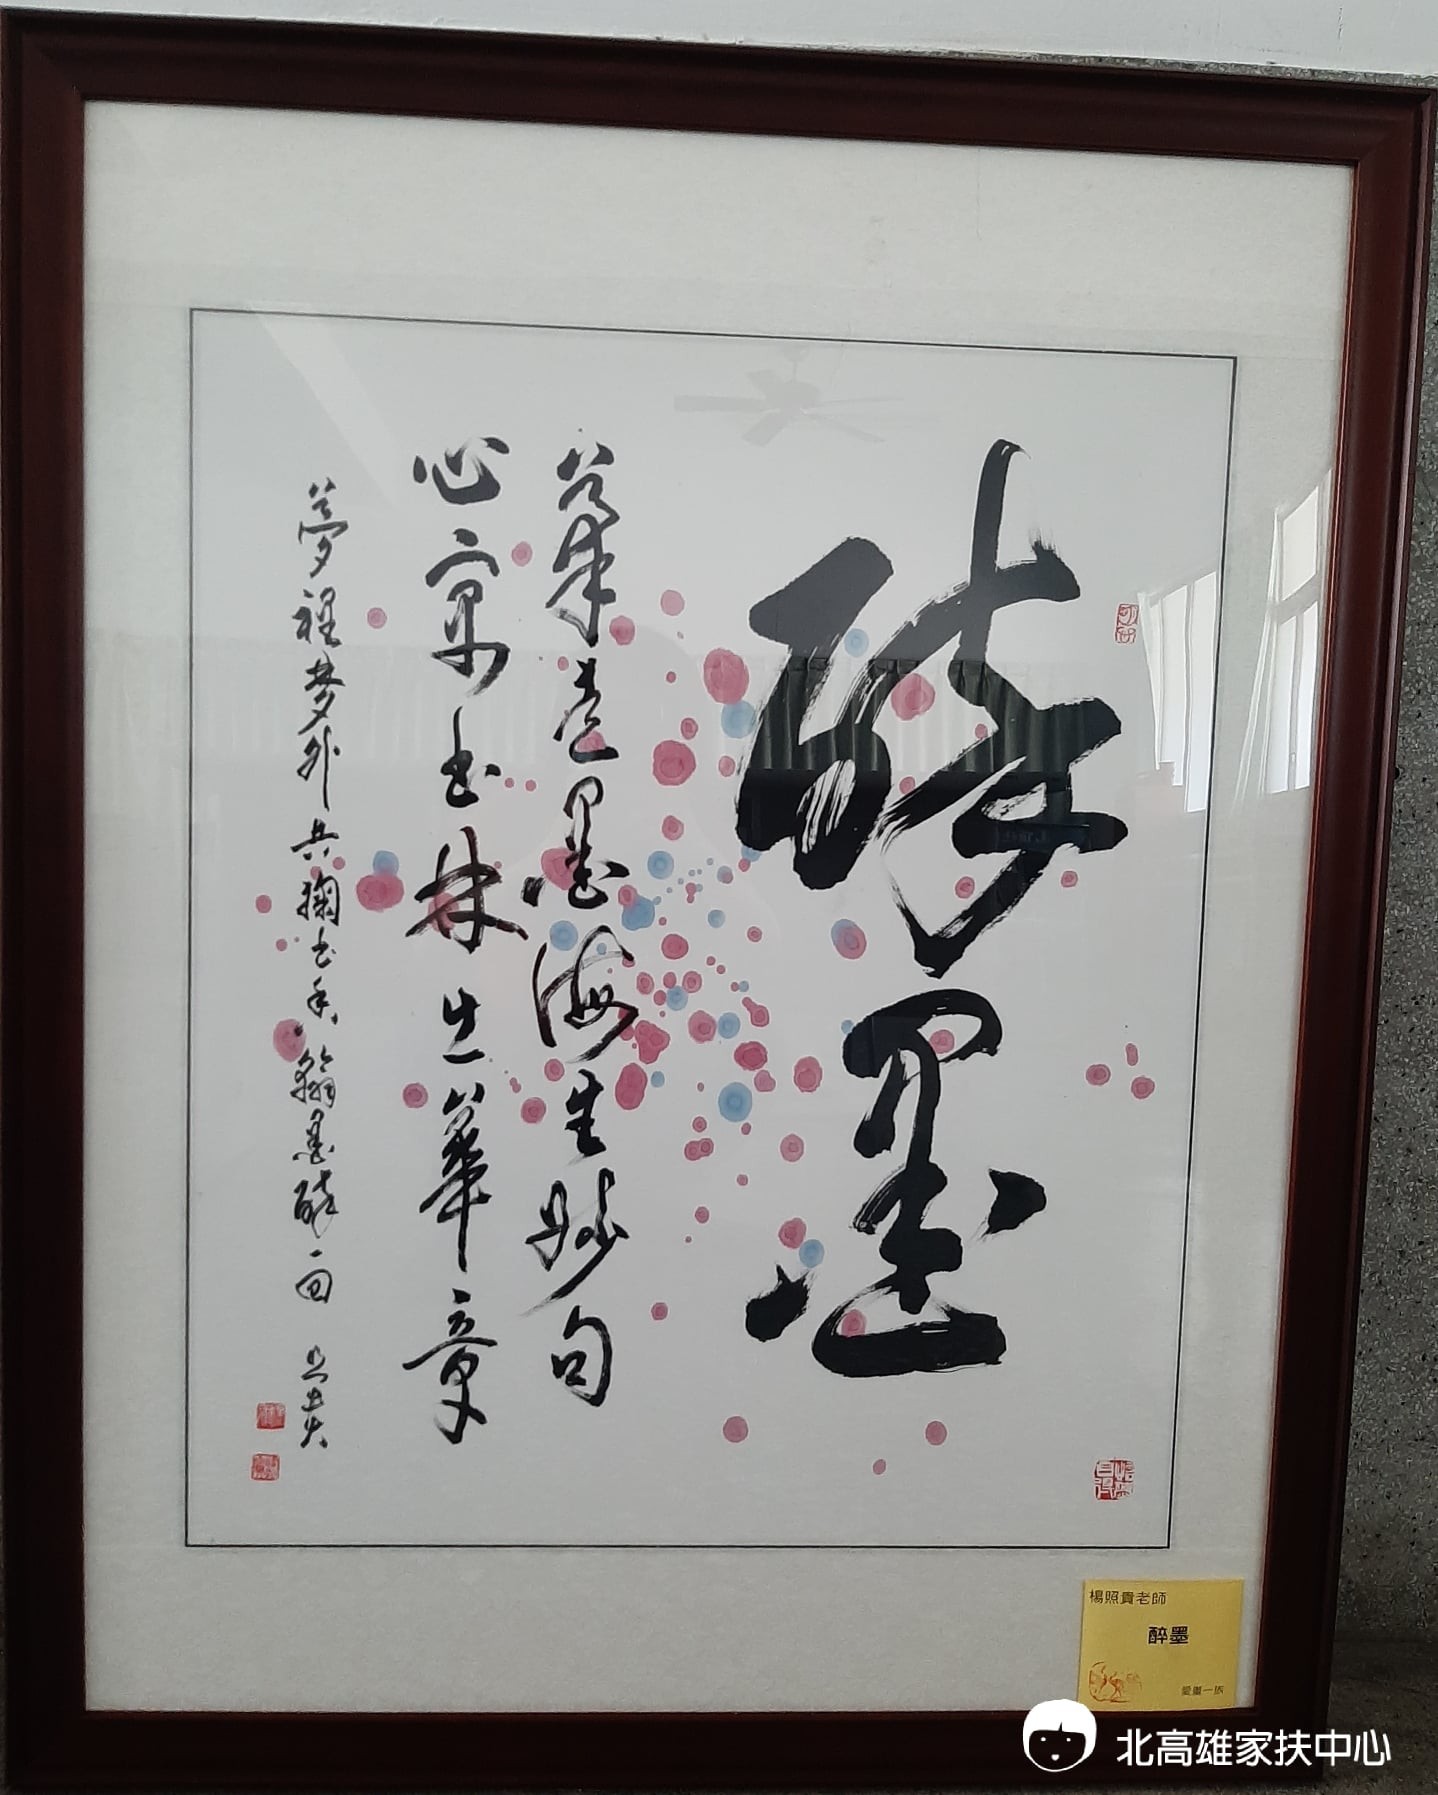 醉墨
筆走墨海生妙句
心寄書林出華章
夢裡夢外共掬書香翰墨醉一回 照貴
楊照貴老師
醉墨
愛墨一族
北高雄家扶中心